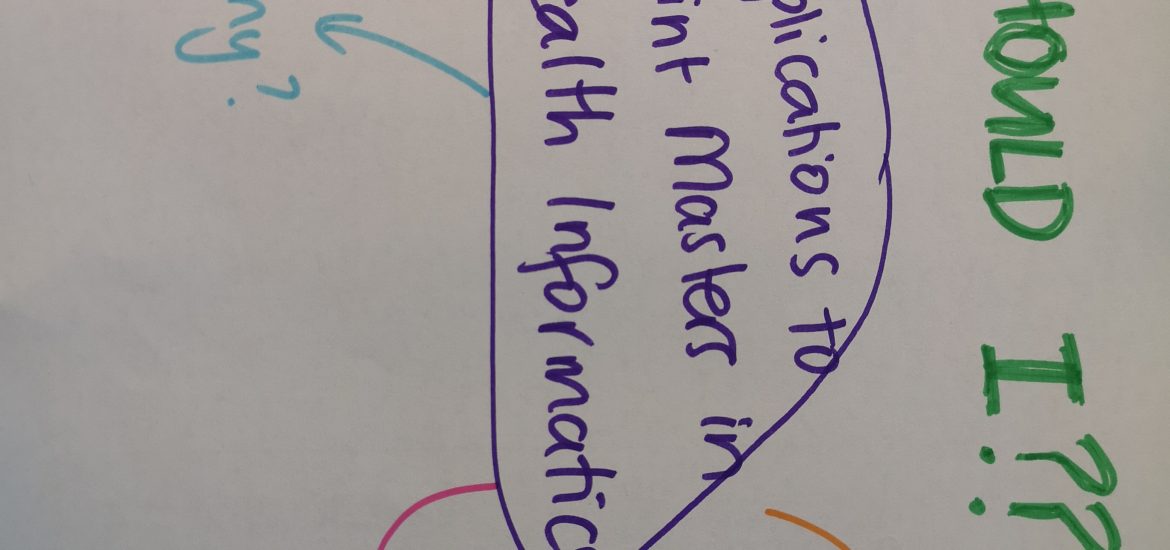 HOULD I??
plications to
int Masters in
ealth Informatic
hy?